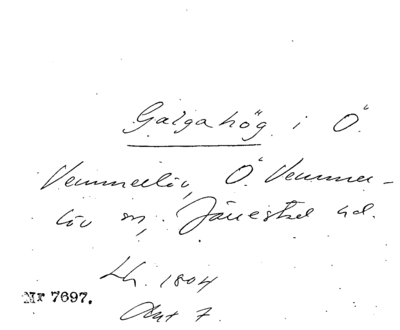 Galgahög i Ö.
Vemmerlöv, Ö. Vemmer-
löv sn, Järrestad hd.
Lh. 1804
Akt 7.
Nr 7697.